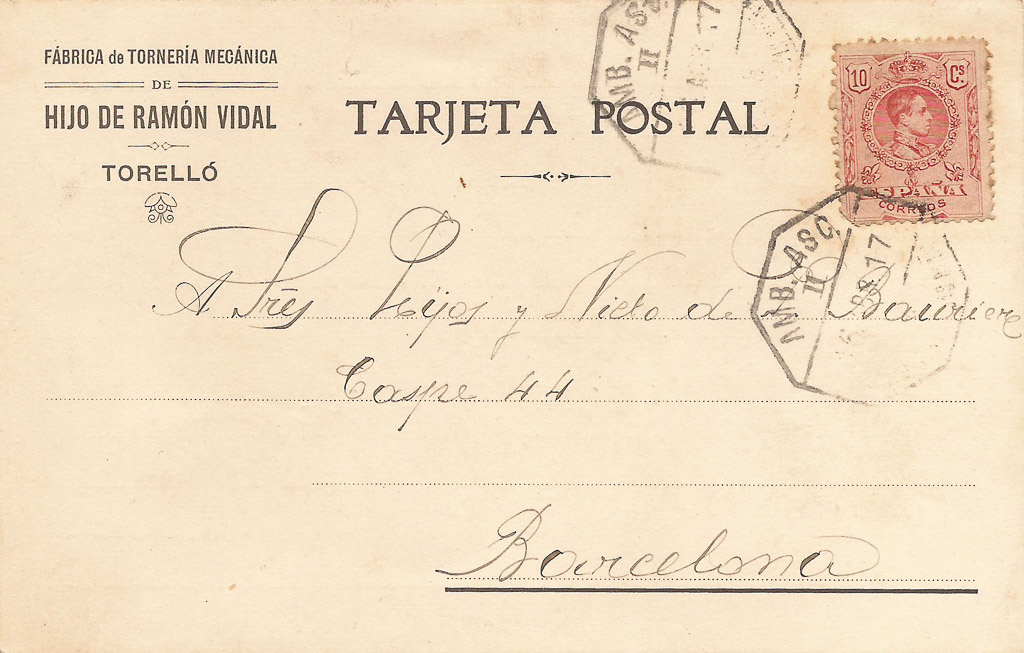 FÁBRICA de TORNERÍA MECÁNICA
DE
HIJO DE RAMÓN VIDAL
TORELLÓ
TARJETA POSTAL
AMB. ASC.
II
17
10 Cs.
ESPAÑA
CORREOS
AMB. ASC.
II
17
A Sres Hijos y Nieto de
Caspe 44
Barcelona